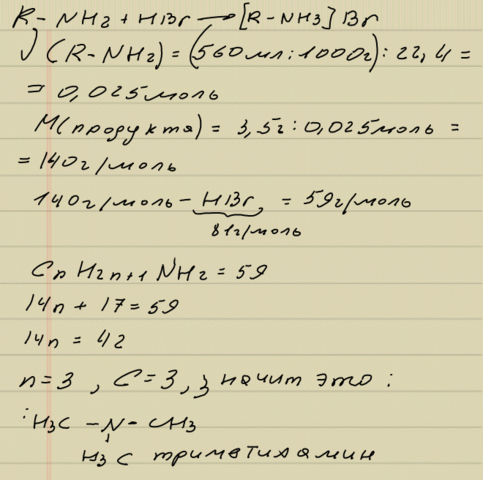 R-NH2 + HBr → [R-NH3]Br
√(R-NH2) = (560мл:1000г):22,4 =
= 0,025моль
M(продукта) = 3,5г:0,025моль =
= 140г/моль
140г/моль - HBr = 59г/моль
81г/моль
CnH2n+1NH2 = 59
14n + 17 = 59
14n = 42
n=3, C=3, значит это :
:H3C - N - CH3
H3C триметиламин